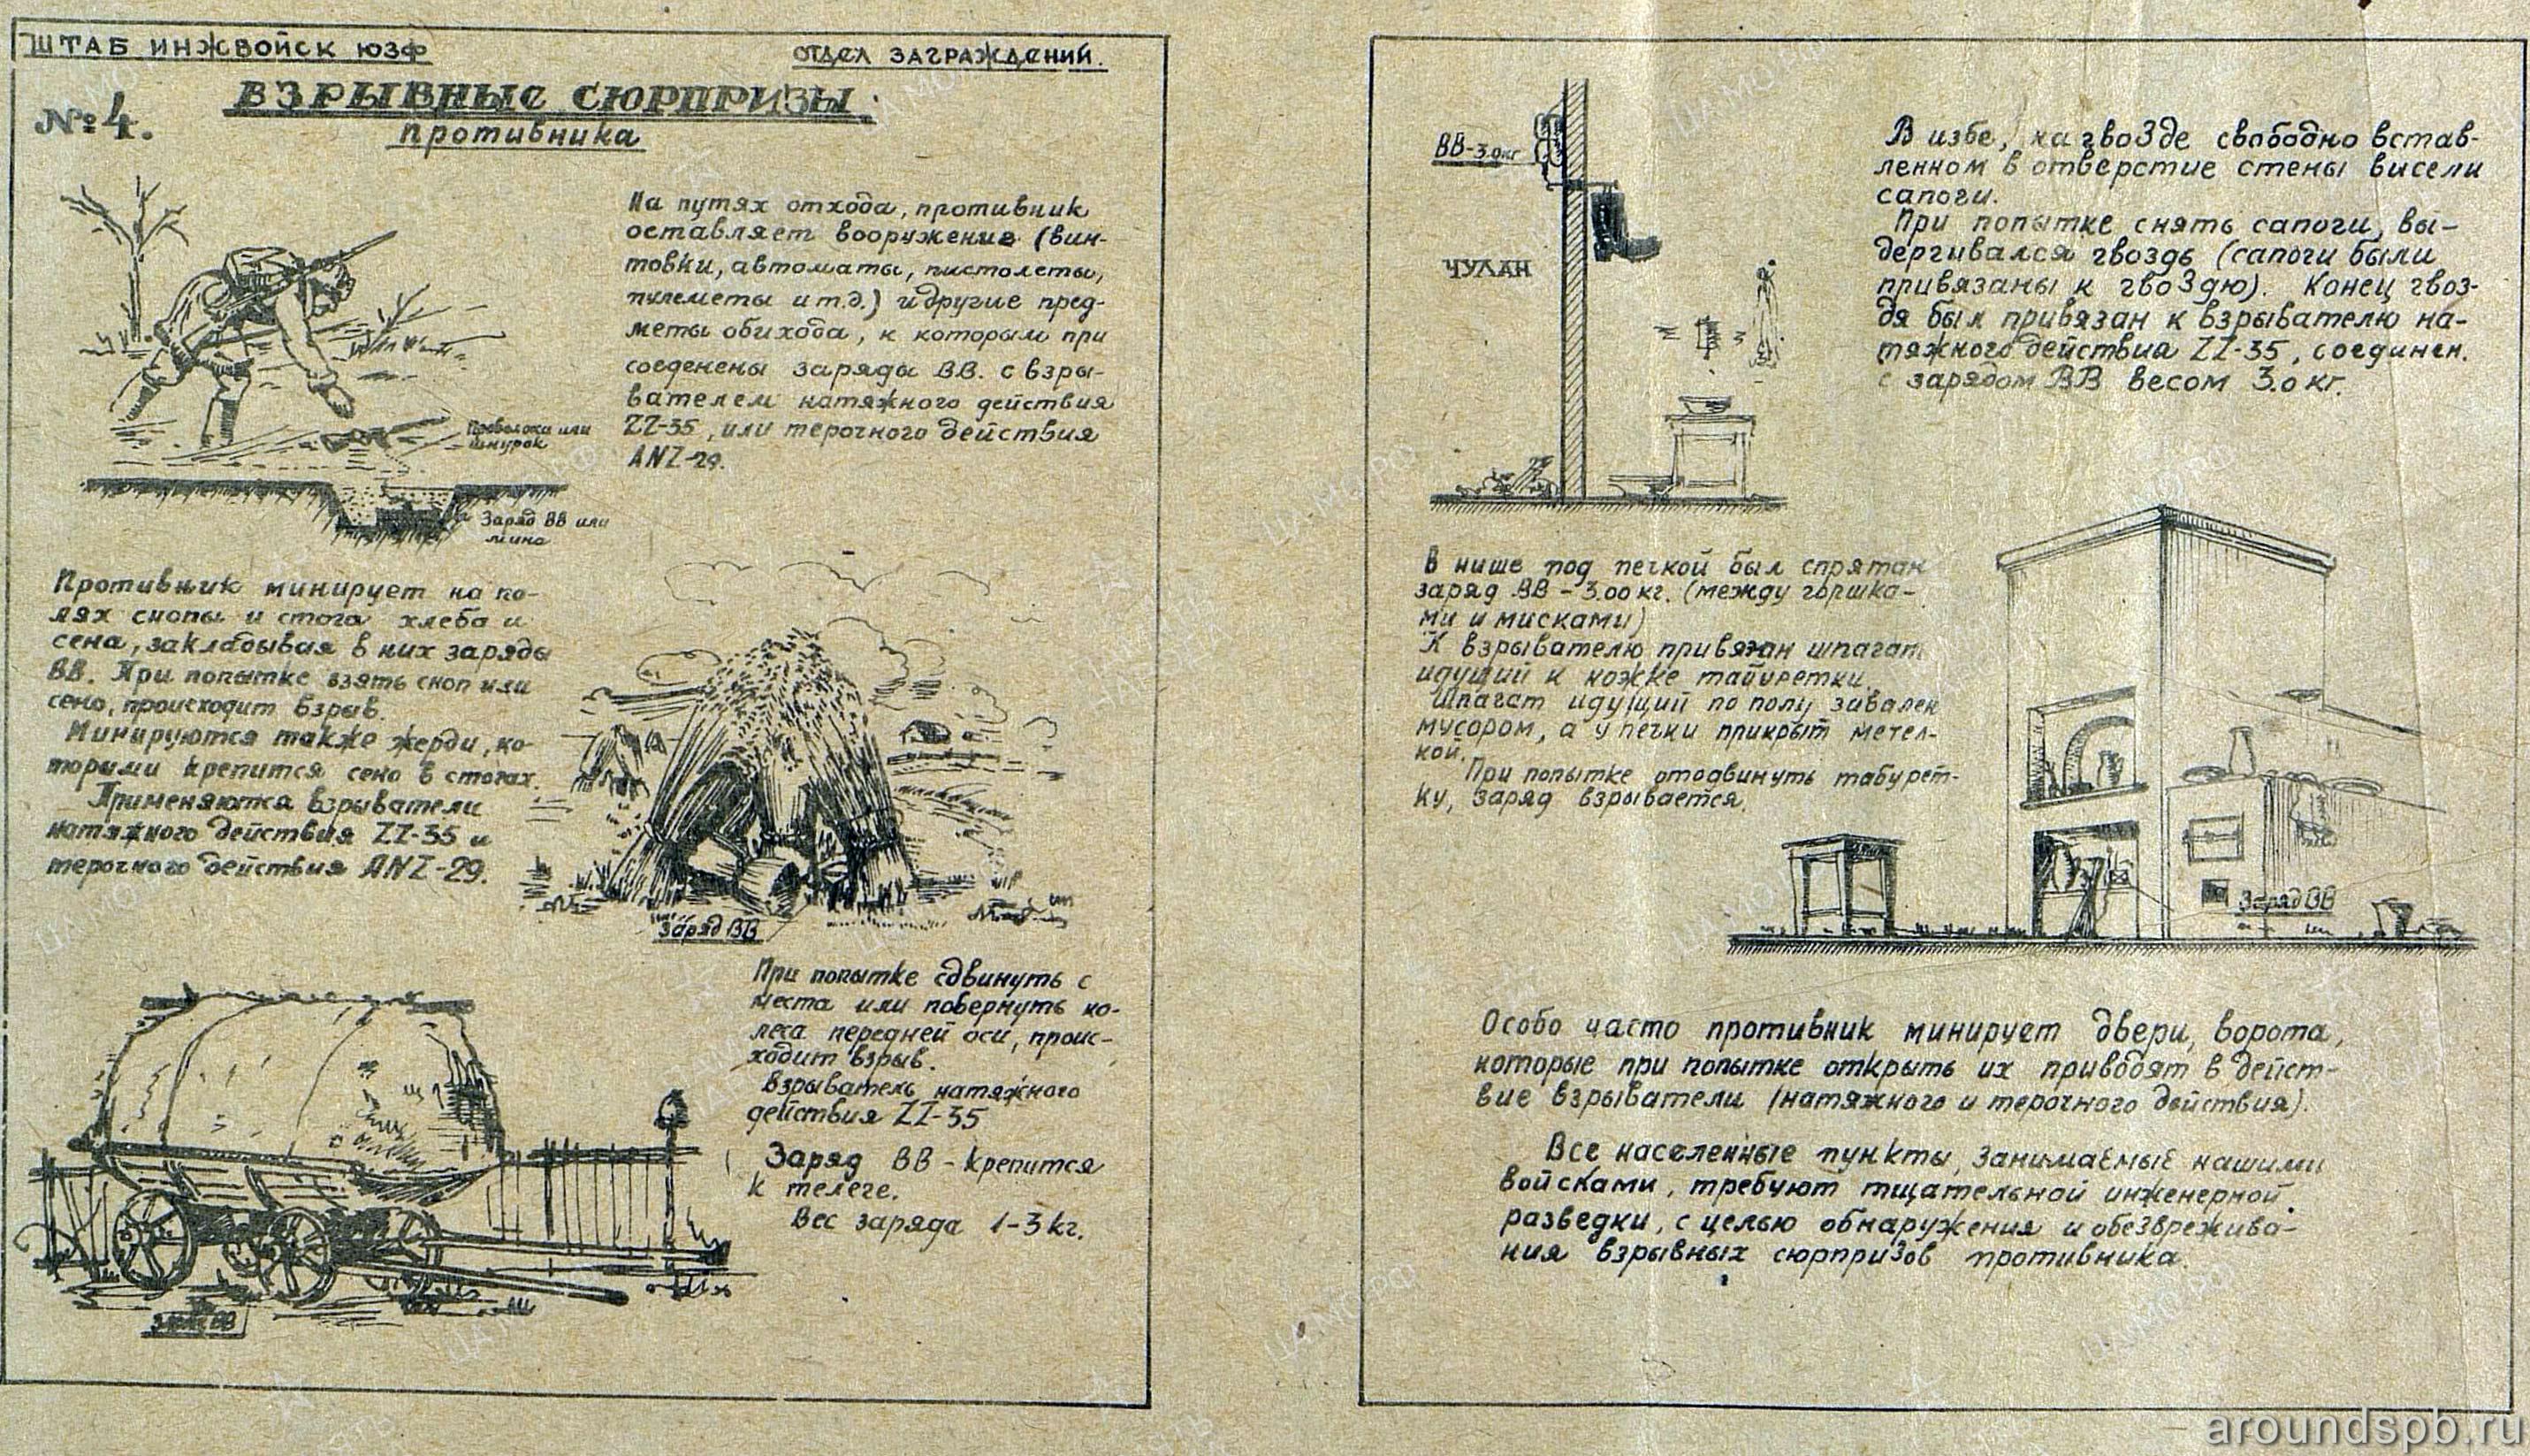 ШТАБ ИНЖВОЙСК ЮЗФ
ОТДЕЛ ЗАГРАЖДЕНИЙ.
№ 4.
ВЗРЫВНЫЕ СЮРПРИЗЫ
противника
На путях отхода, противник
оставляет вооружение (вин-
товки, автоматы, пистолеты,
пулеметы и т.д.) и другие пред-
меты обихода, к которым при
соеденены заряды ВВ. с взры-
вателем натяжного действия
ZZ-35, или терочного действия
ANZ-29.
Проволока или
шнурок
Заряд ВВ или
мина
Противник минирует на по-
лях снопы и стога хлеба и
сена, закладывая в них заряды
ВВ. При попытке взять сноп или
сено, происходит взрыв.
Минируются также жерди, ко-
торыми крепится сено в стогах.
Применяются взрыватели
натяжного действия ZZ-35 и
терочного действия ANZ-29.
Заряд ВВ
При попытке сдвинуть с
места или повернуть ко-
леса передней оси, проис-
ходит взрыв.
Взрыватель натяжного
действия ZZ-35
Заряд ВВ - крепится
к телеге.
Вес заряда 1-3 кг.
Заряд ВВ
ВВ-3.0кг
ЧУЛАН
В избе, на гвозде свободно встав-
ленном в отверстие стены висели
сапоги.
При попытке снять сапоги, вы-
дергивался гвоздь (сапоги были
привязаны к гвоздю). Конец гвоз-
дя был привязан к взрывателю на-
тяжного действия ZZ-35, соединен.
с зарядом ВВ весом 3.0 кг.
В нише под печкой был спрятан
заряд ВВ - 3.00 кг. (между горшка-
ми и мисками)
К взрывателю привязан шпагат
идущий к ножке табуретки.
Шпагат идущий по полу завален
мусором, а у печки прикрыт метел-
кой.
При попытке отодвинуть табурет-
ку, заряд взрывается.
Заряд ВВ
Особо часто противник минирует двери, ворота,
которые при попытке открыть их приводят в дейст-
вие взрыватели (натяжного и терочного действия).
Все населенные пункты, занимаемые нашими
войсками, требуют тщательной инженерной
разведки, с целью обнаружения и обезврежива-
ния взрывных сюрпризов противника.
aroundspb.ru